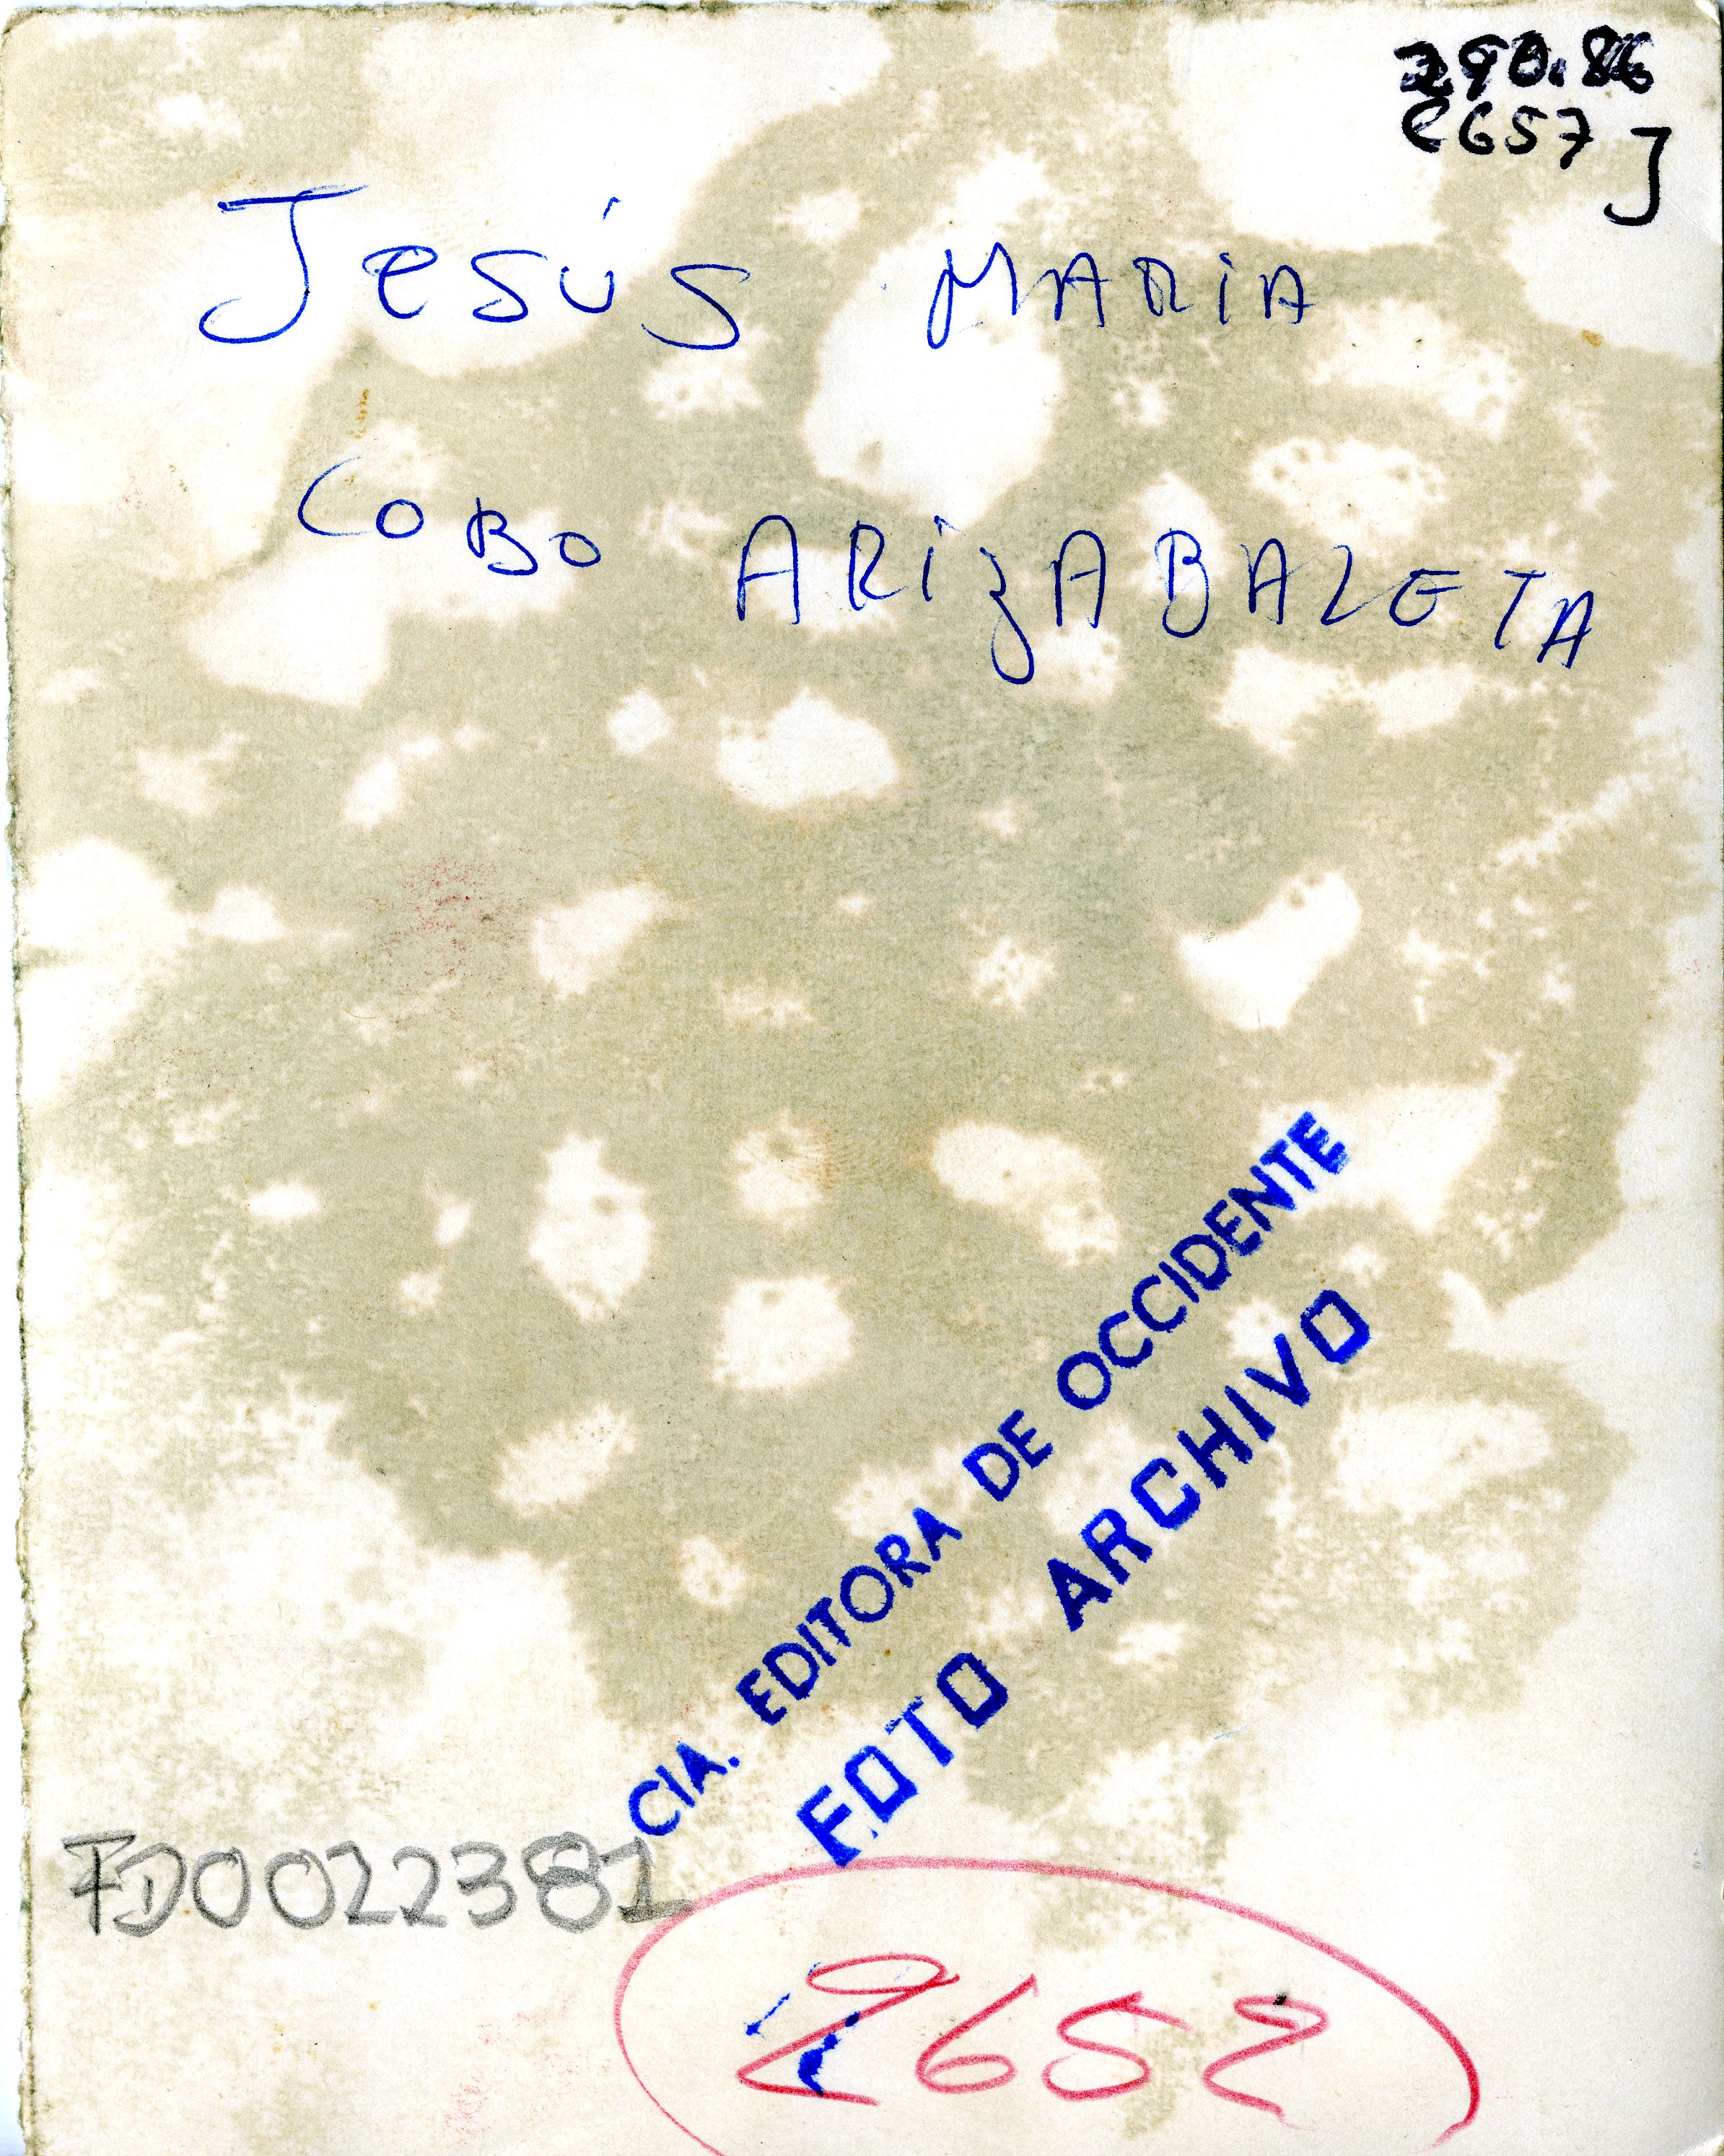 290.86
C657 J
Jesús MARiA
COBO ARizABALETA
CIA. EDITORA DE OCCIDENTE
FOTO ARCHIVO
FD0022381
2652